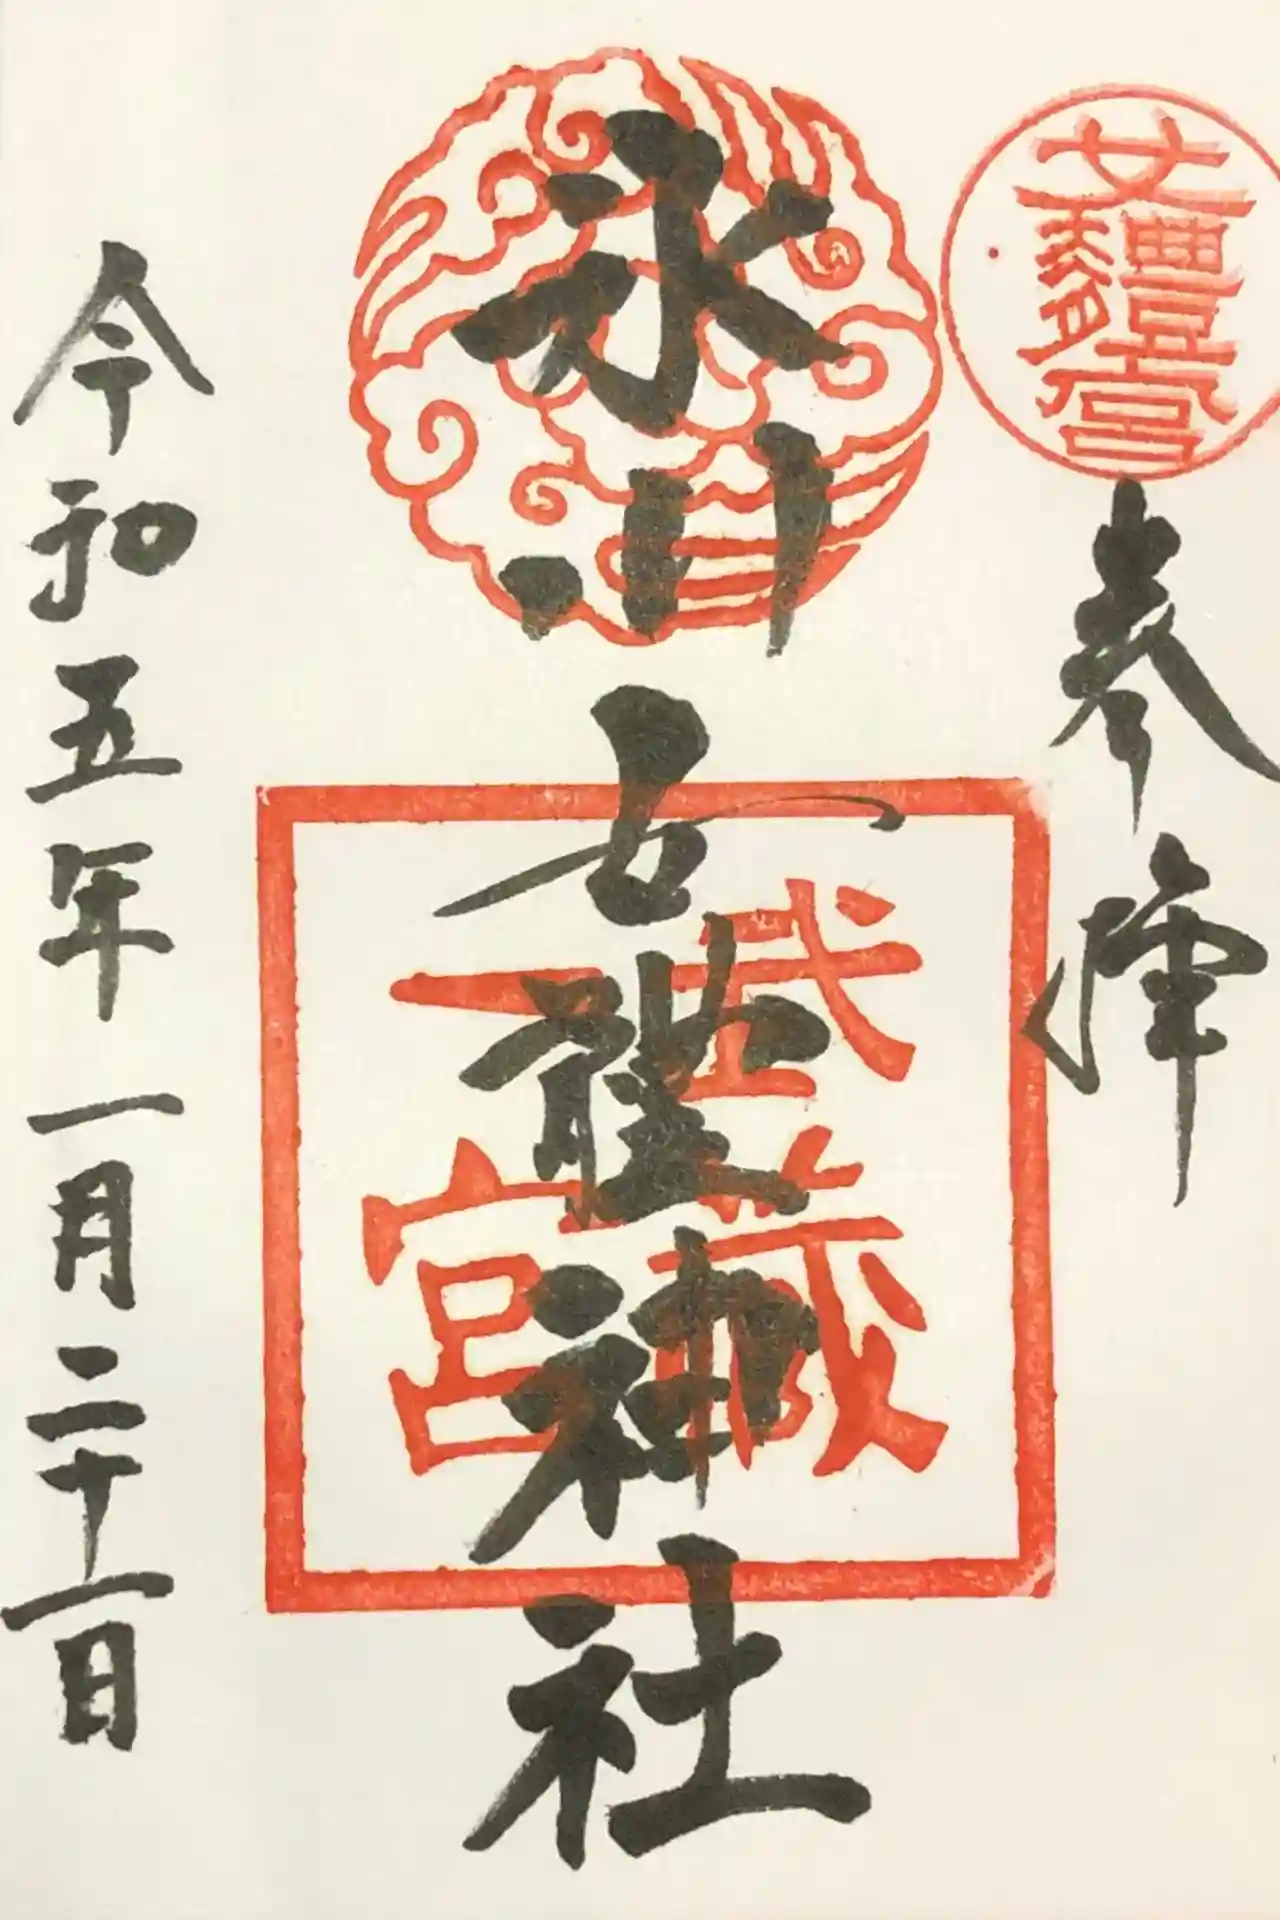 女體宮
奉拝
氷川女體神社
武蔵
一宮
令和五年一月二十一日